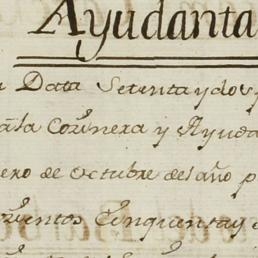 Ayudanta
Data Setenta y dos
a la Cozinera y Ayuda
ero de Octubre del año p
cientos Cinquenta y